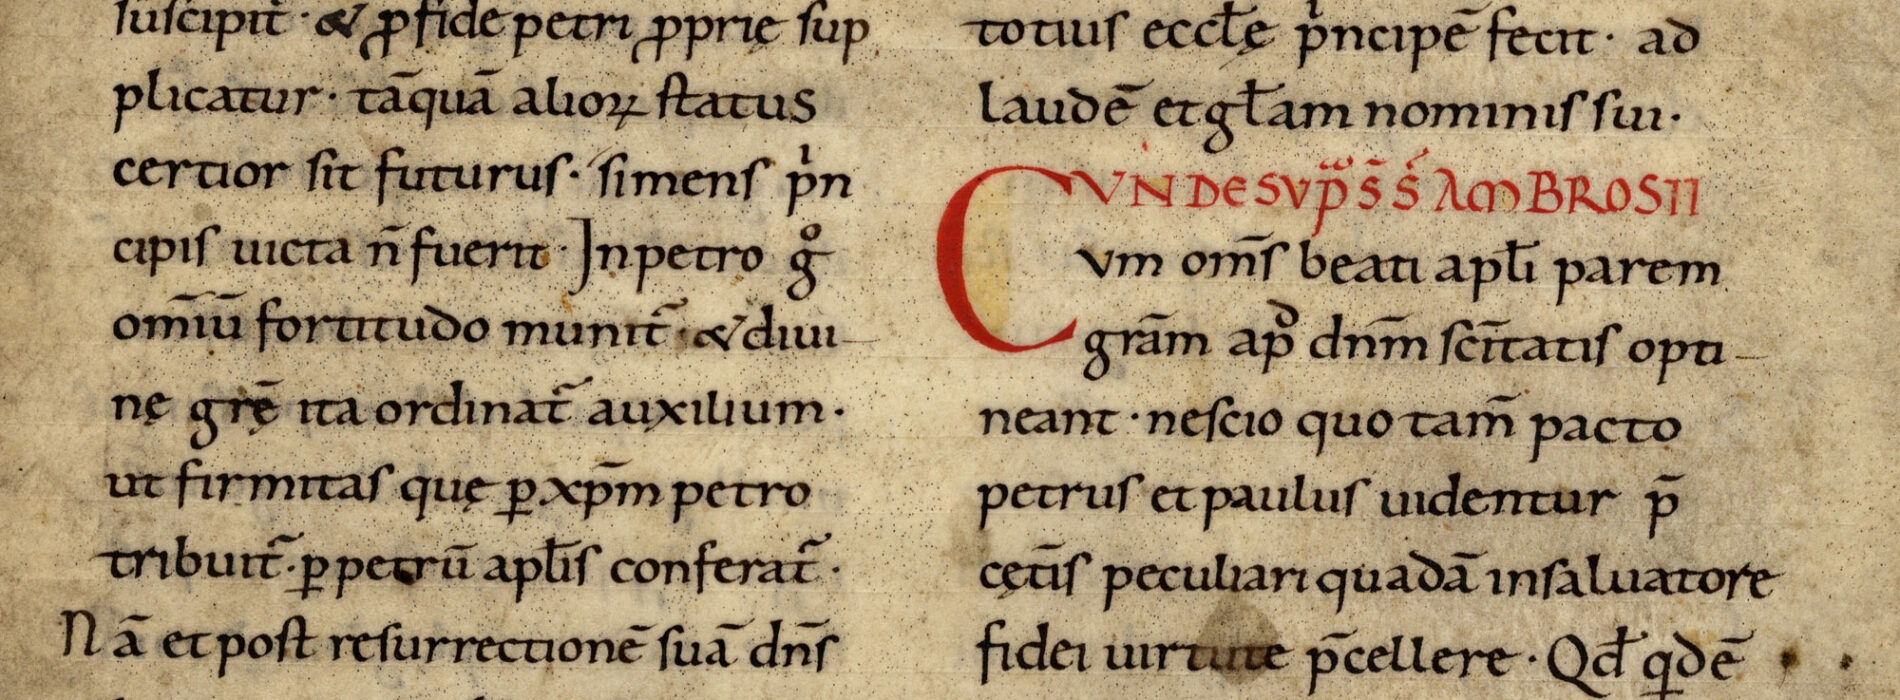 suscipit̄ · & ꝓ fide petri ꝓprię sup
plicatur · tāquā alioꝝ status
certior sit futurus · si mens pⁱn
cipis uicta n̄ fuerit · In petro gͦ
om̄iū fortitudo munit̄ · & diui
nę grę̄ ita ordinat̄ auxilium ·
ut firmitas quę ꝑ xp̄m petro
tribuit̄ · ꝑ petrū apl̄is conferat̄ ·
Nā et post resurrectionē suā dn̄s
totius eccl̄ę pⁱncipē fecit · ad
laudē et gl̄am nominis sui ·
VN DE SVP̄S S̄ Ś AMBROSII
Cvm om̄s beati apl̄i parem
grām apͩ dn̄m sc̄itatis opti
neant · nescio quo tam̄ pacto
petrus et paulus uidentur p̄
cęt̄is peculiari quadā in saluatore
fidei uirtute p̄cellere · Qd̄ qdē